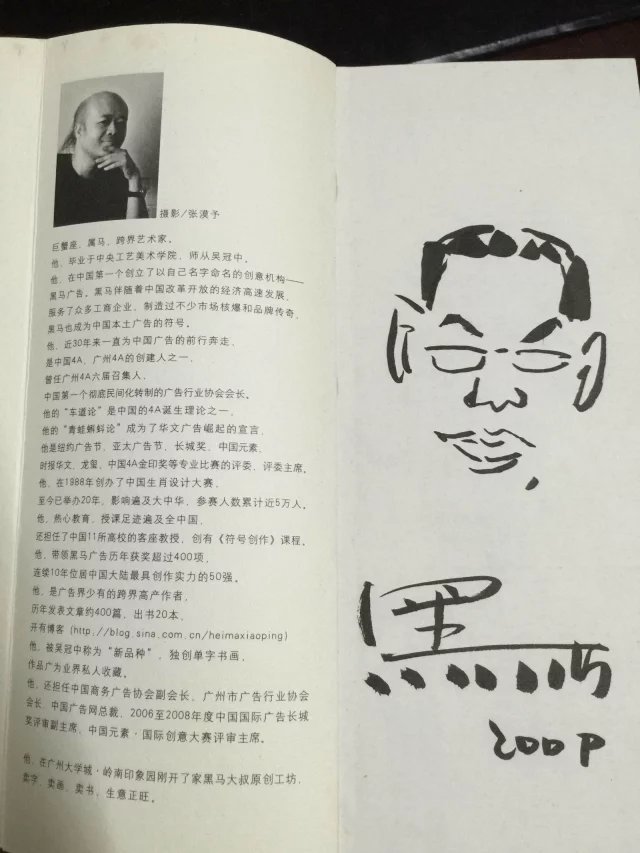 摄影/张漠予
巨蟹座，属马，跨界艺术家。
他，毕业于中央工艺美术学院，师从吴冠中。
他，在中国第一个创立了以自己名字命名的创意机构——
黑马广告。黑马伴随着中国改革开放的经济高速发展，
服务了众多工商企业，制造过不少市场核爆和品牌传奇，
黑马也成为中国本土广告的符号。
他，近30年来一直为中国广告的前行奔走，
是中国4A、广州4A的创建人之一，
曾任广州4A六届召集人，
中国第一个彻底民间化转制的广告行业协会会长。
他的“车道论”是中国的4A诞生理论之一，
他的“青蛙蝌蚪论”成为了华文广告崛起的宣言，
他是纽约广告节、亚太广告节、长城奖、中国元素、
时报华文、龙玺、中国4A金印奖等专业比赛的评委、评委主席。
他，在1988年创办了中国生肖设计大赛，
至今已举办20年，影响遍及大中华，参赛人数累计近5万人。
他，热心教育，授课足迹遍及全中国，
还担任了中国11所高校的客座教授，创有《符号创作》课程。
他，带领黑马广告历年获奖超过400项，
连续10年位居中国大陆最具创作实力的50强。
他，是广告界少有的跨界高产作者，
历年发表文章约400篇，出书20本，
开有博客（http://blog.sina.com.cn/heimaxiaoping）
他，被吴冠中称为“新品种”，独创单字书画，
作品广为业界私人收藏。
他，还担任中国商务广告协会副会长、广州市广告行业协会
会长、中国广告网总裁，2006至2008年度中国国际广告长城
奖评审副主席，中国元素·国际创意大赛评审主席。
他，在广州大学城·岭南印象园刚开了家黑马大叔原创工坊，
卖字、卖画、卖书，生意正旺。
黑
200P